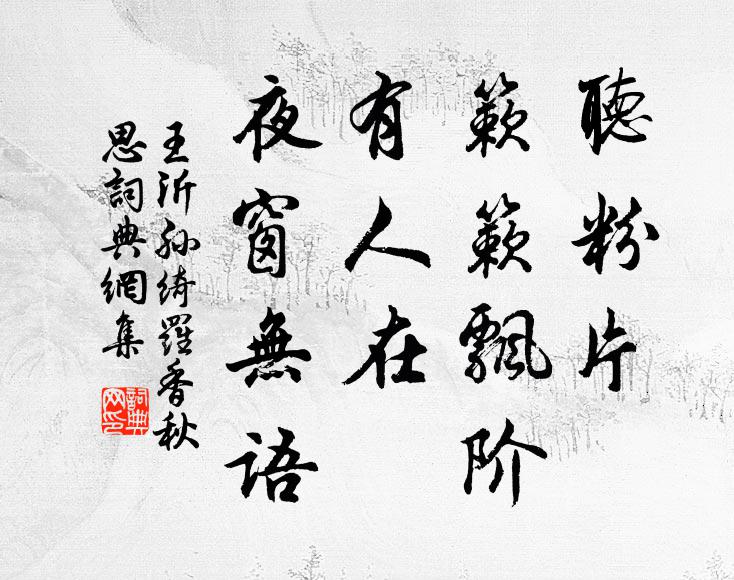 聽粉片
簌簌飄阶
有人在
夜窗無语
王沂孙綺羅香秋
思詞典網集
詞典
网印